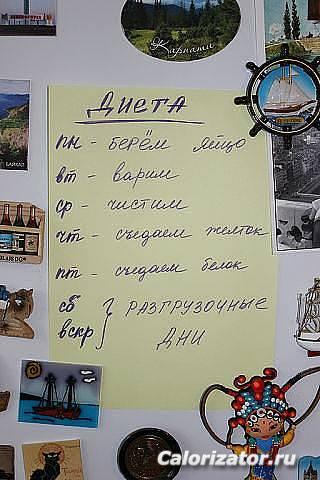 Карпати
ДИЕТА
пн - берём яйцо
вт - варим
ср - чистим
чт - съедаем желток
пт - съедаем белок
сб
вскр } РАЗГРУЗОЧНЫЕ
ДНИ
Calorizator.ru